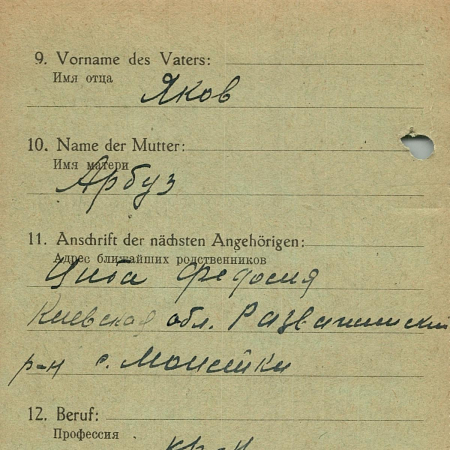 9. Vorname des Vaters:
Имя отца
Яков
10. Name der Mutter:
Имя матери
Арбуз
11. Anschrift der nächsten Angehörigen:
Адрес ближайших родственников
Федосия
Киевская обл.
р-н с.
12. Beruf:
Профессия